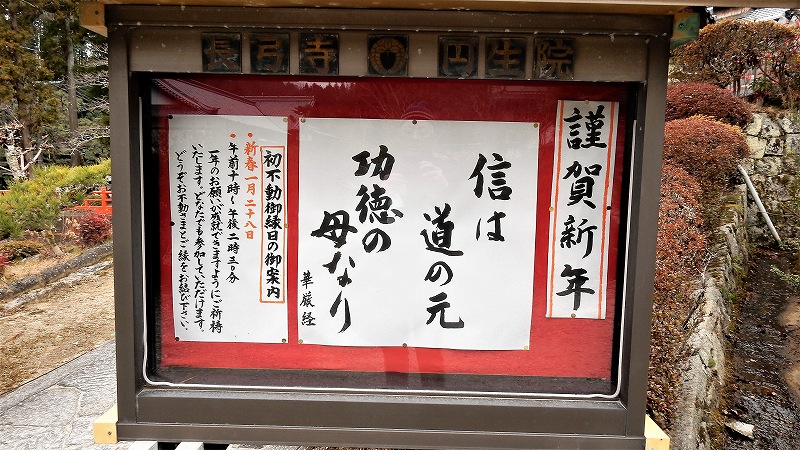 長弓寺 円生院
謹賀新年
信は
道の元
功徳の
母なり
華厳経
初不動御縁日の御案内
・新春一月二十八日
・午前十時～午後二時三〇分
一年のお願いが成就できますようにご祈祷
いたします。どなたでも参加していただけます。
どうぞお不動さまとご縁をお結び下さい。